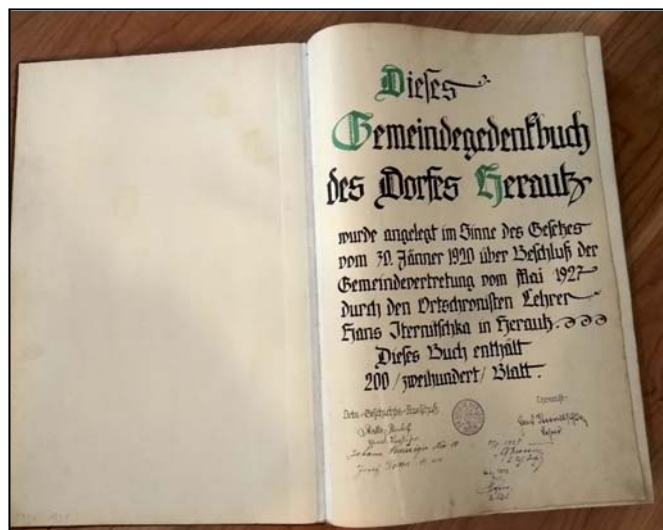 Dieses
Gemeindegedenkbuch
des Dorfes Herautz
wurde angelegt im Sinne des Gesetzes
vom 30. Jänner 1920 über Beschluß der
Gemeindevertretung vom Mai 1927
durch den Ortschronisten Lehrer
Hans Iternitschka in Herautz.
Dieses Buch enthält
200 / zweihundert / Blatt.
Orts-Geschichts-Ausschuß:
Chronist:
Johann
Josef